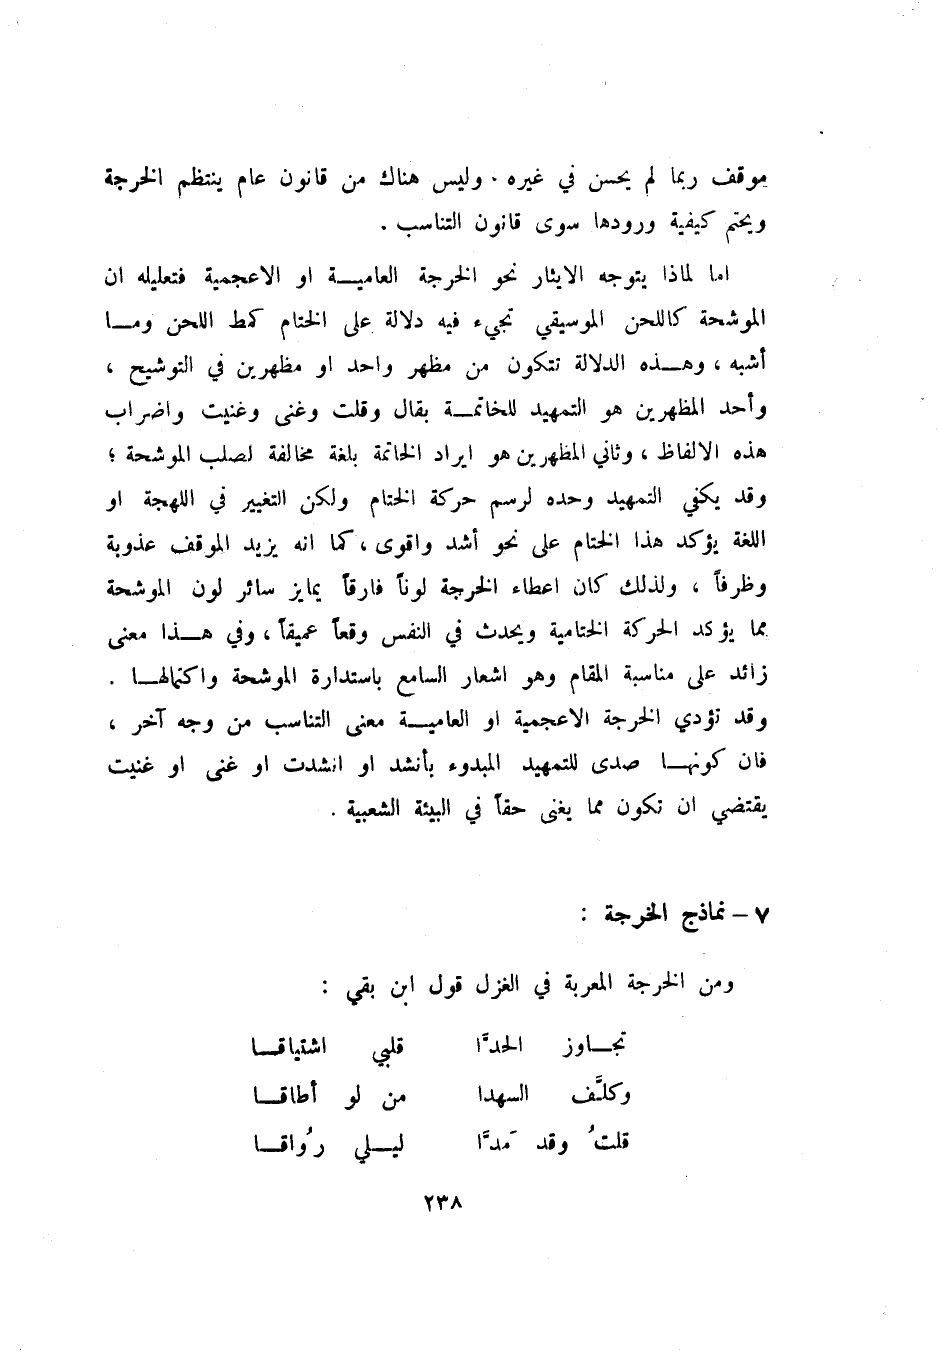 موقف ربما لم يحسن في غيره . وليس هناك من قانون عام ينتظم الخرجة
ويحتم كيفية ورودها سوى قانون التناسب .
اما لماذا يتوجه الايثار نحو الخرجة العامية او الاعجمية فتعليله ان
الموشحة كاللحن الموسيقي تجيء فيه دلالة على الختام كمط اللحن وما
أشبه ، وهذه الدلالة تتكون من مظهر واحد او مظهرين في التوشيح ،
وأحد المظهرين هو التمهيد للخاتمة بقال وقلت وغنى وغنيت واضراب
هذه الالفاظ ، وثاني المظهرين هو ايراد الخاتمة بلغة مخالفة لصلب الموشحة ؛
وقد يكفي التمهيد وحده لرسم حركة الختام ولكن التغيير في اللهجة او
اللغة يؤكد هذا الختام على نحو أشد واقوى ، كما انه يزيد الموقف عذوبة
وظرفاً ، ولذلك كان اعطاء الخرجة لوناً فارقاً يمايز سائر لون الموشحة
مما يؤكد الحركة الختامية ويحدث في النفس وقعاً عميقاً ، وفي هذا معنى
زائد على مناسبة المقام وهو اشعار السامع باستدارة الموشحة واكتمالها .
وقد تؤدي الخرجة الاعجمية او العامية معنى التناسب من وجه آخر ،
فان كونها صدى للتمهيد المبدوء بأنشد او انشدت او غنى او غنيت
يقتضي ان تكون مما يغنى حقاً في البيئة الشعبية .
٧ – نماذج الخرجة :
ومن الخرجة المعربة في الغزل قول ابن بقي :
تجاوز الحدَّا قلبي اشتياقا
وكلَّف السهدا من لو أطاقا
قلتُ وقد مَدَّا ليلي رُواقا
٢٣٨